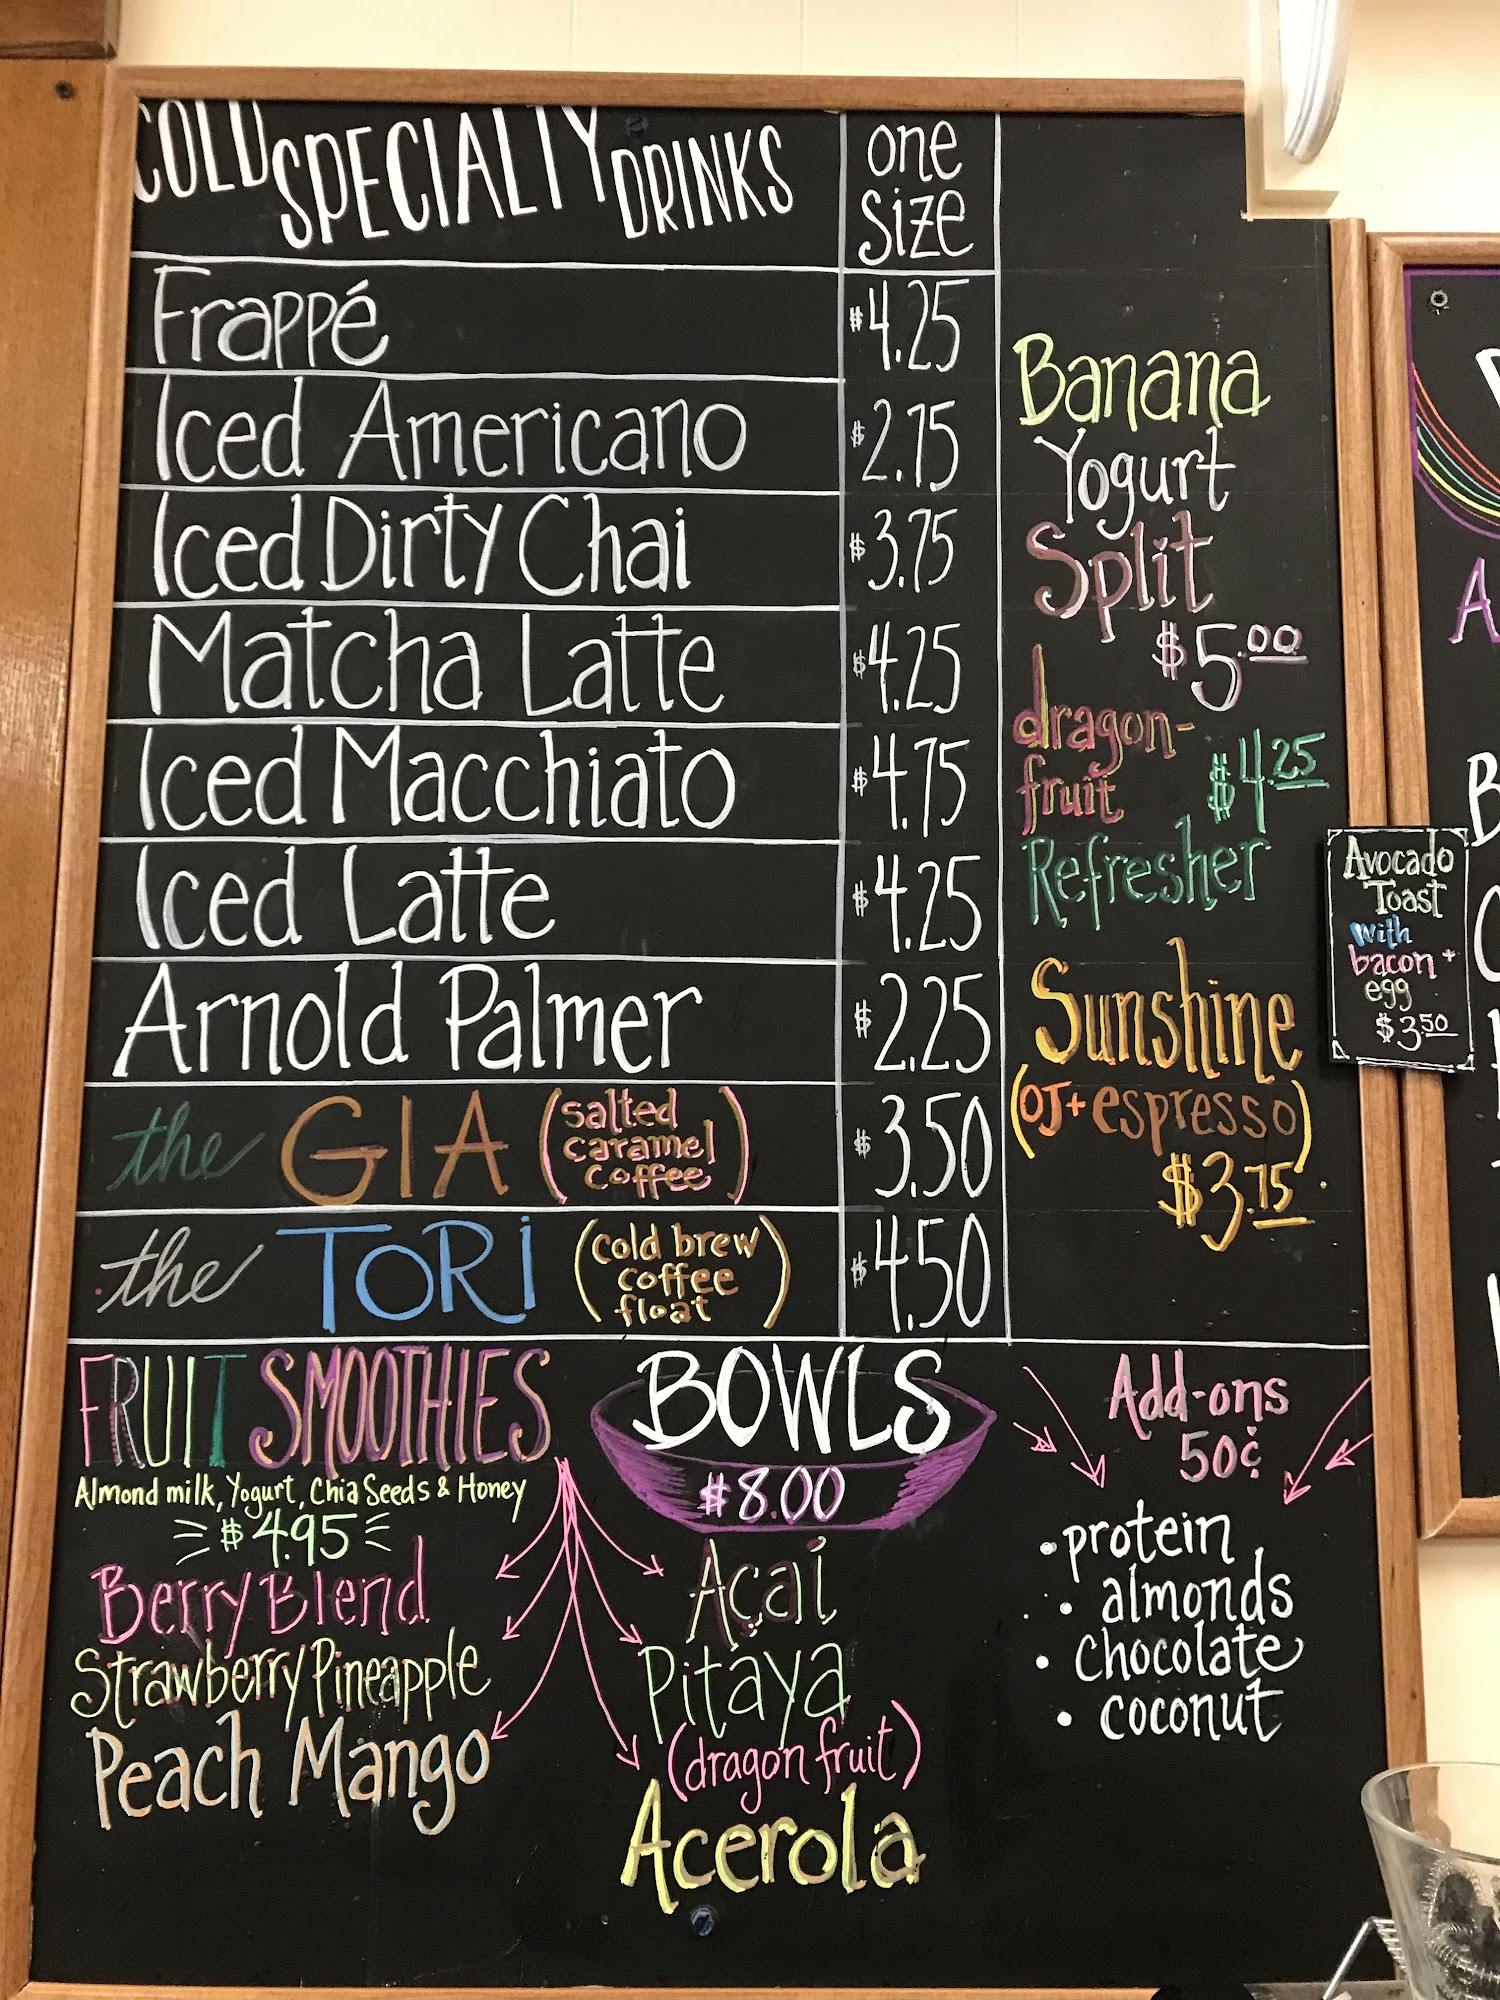 COLD SPECIALTY DRINKS
one size
Frappé $4.25
Iced Americano $2.75
Iced Dirty Chai $3.75
Matcha Latte $4.25
Iced Macchiato $4.75
Iced Latte $4.25
Arnold Palmer $2.25
the GIA (salted caramel coffee) $3.50
the TORI (cold brew coffee float) $4.50
Banana
Yogurt
Split
$5.00
dragon-
fruit $4.25
Refresher
Sunshine
(OJ + espresso)
$3.75
Avocado
Toast
with
bacon +
egg
$3.50
FRUIT SMOOTHIES
Almond milk, Yogurt, Chia Seeds & Honey
$4.95
Berry Blend
Strawberry Pineapple
Peach Mango
BOWLS
$8.00
Açaí
Pitaya
(dragon fruit)
Acerola
Add-ons
50¢
• protein
• almonds
• chocolate
• coconut